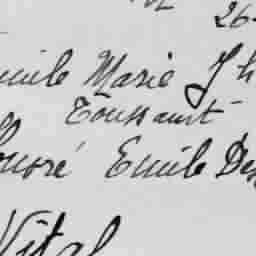 26
Emile Marie Jh
Toussaint
Honoré Emile Des
Vital